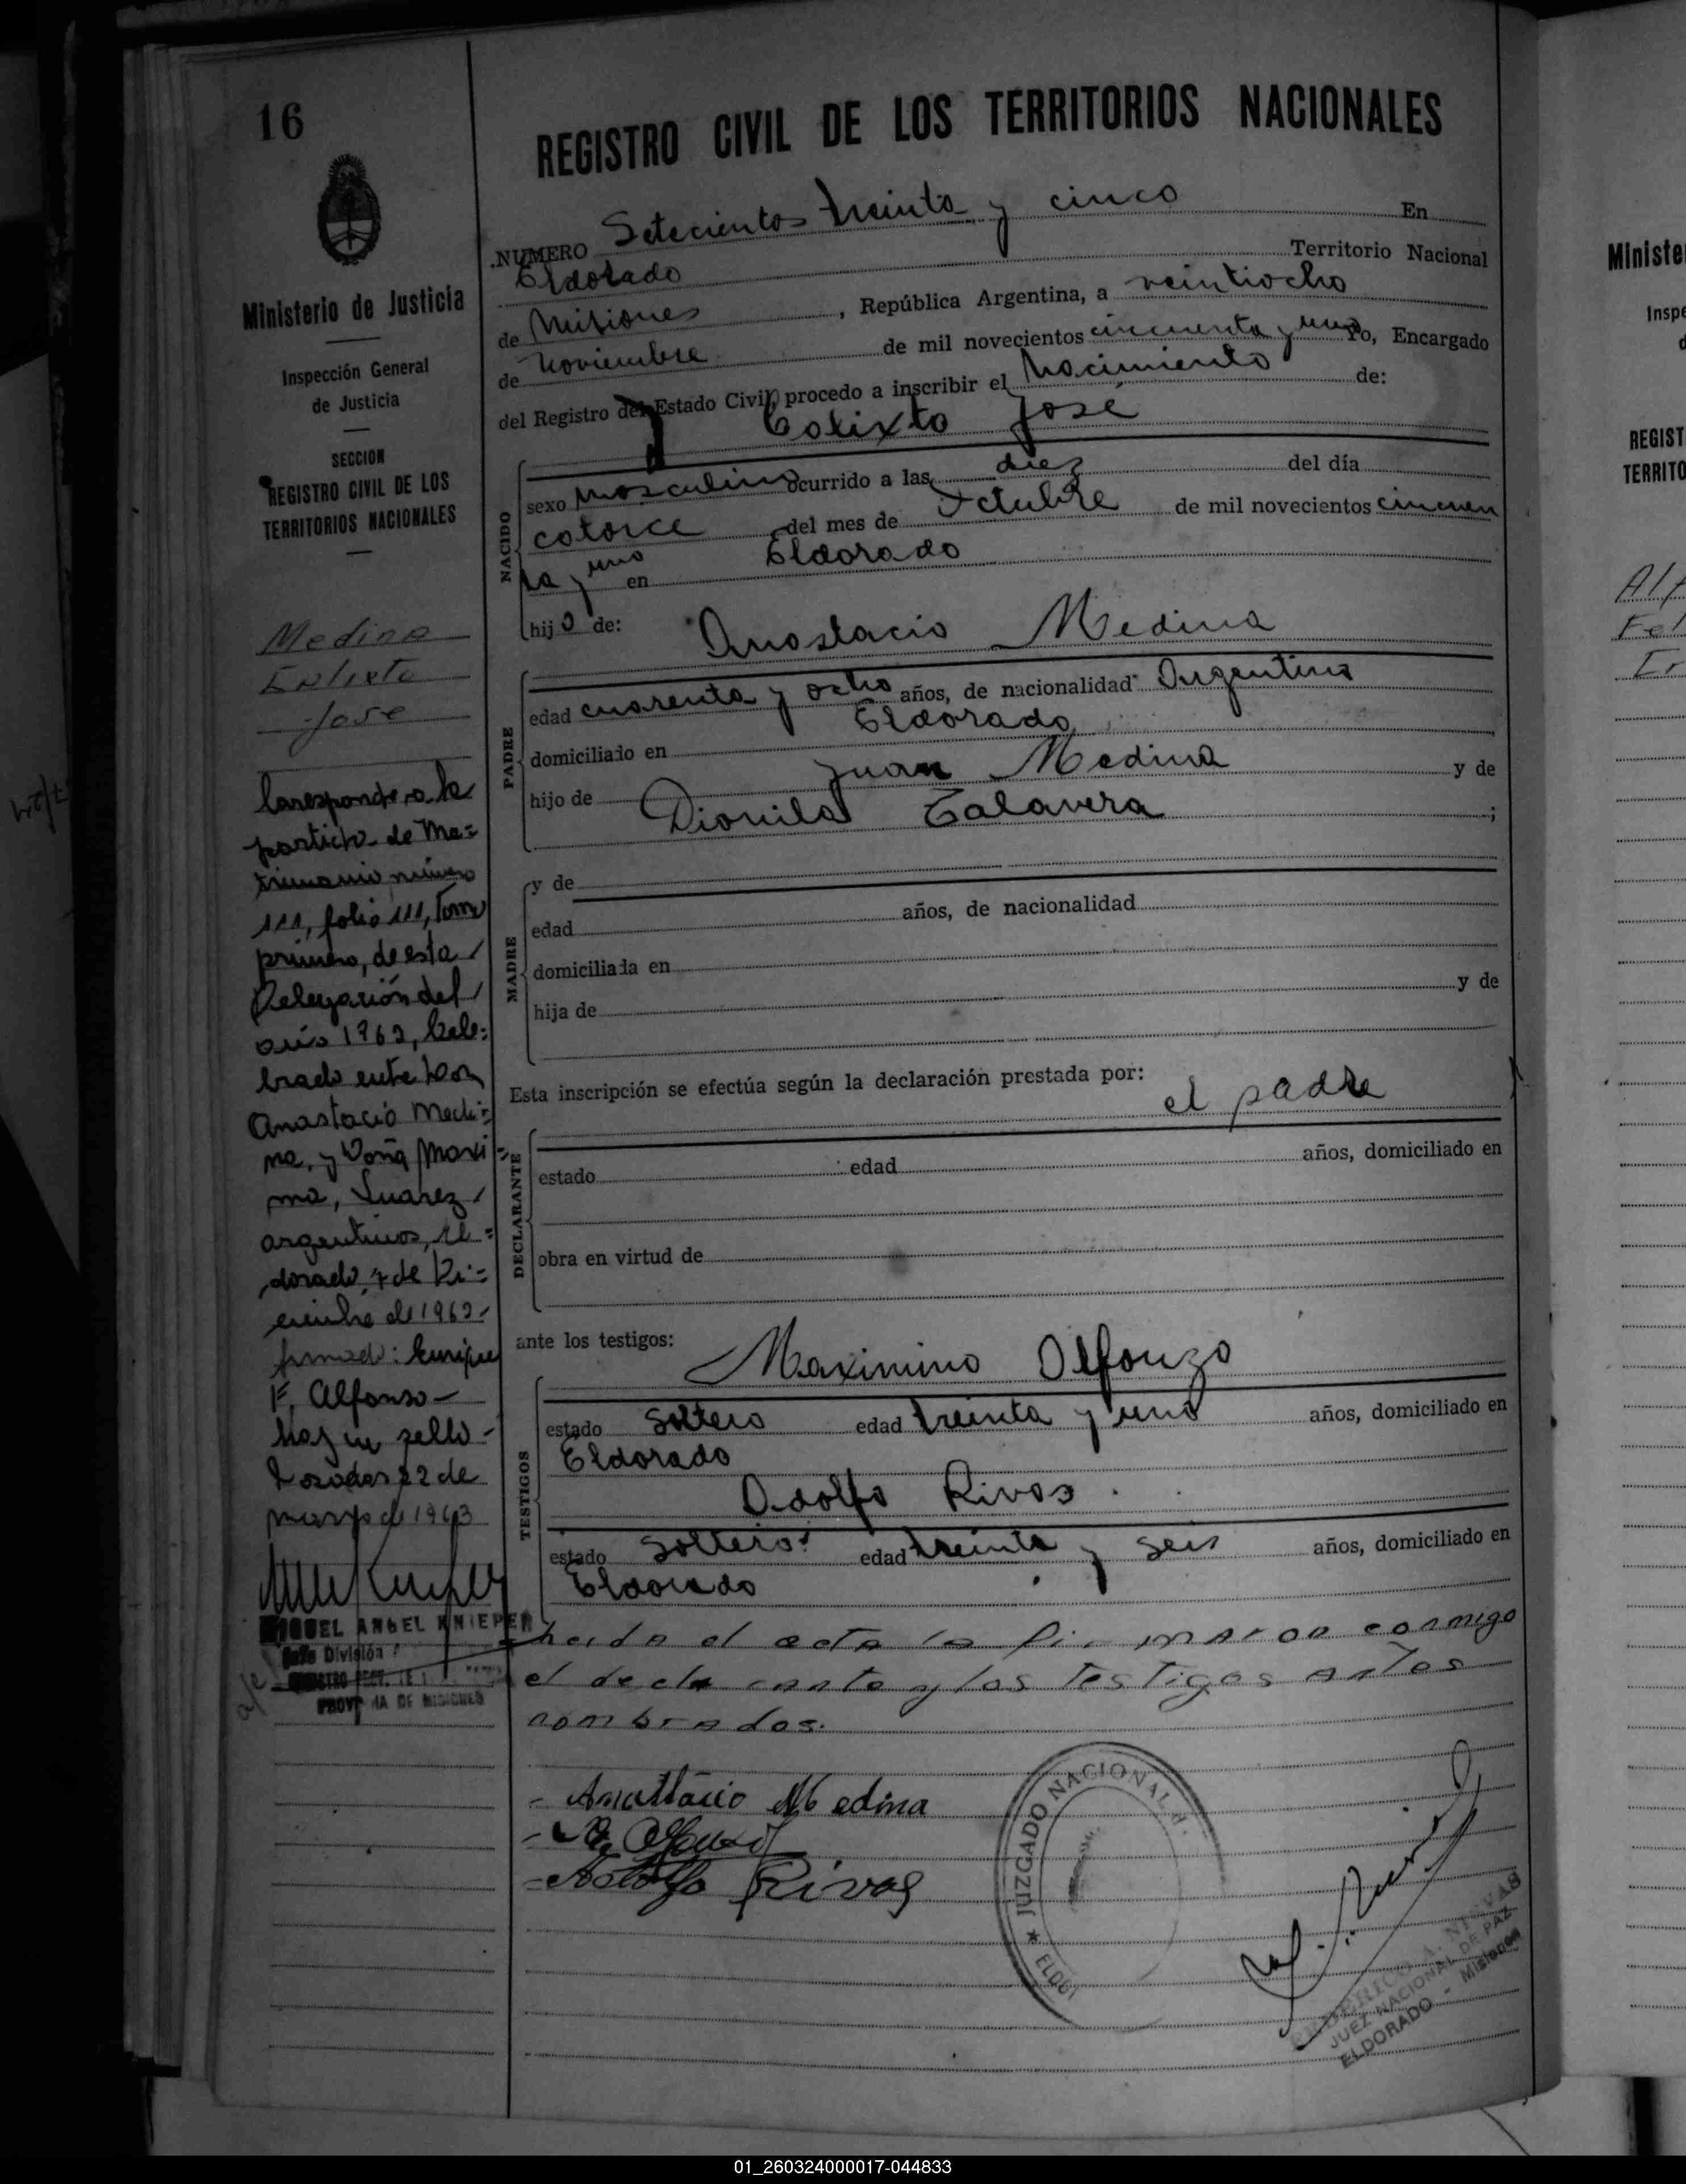 16
REGISTRO CIVIL DE LOS TERRITORIOS NACIONALES
Ministerio de Justicia
Inspección General
de Justicia
SECCION
REGISTRO CIVIL DE LOS
TERRITORIOS NACIONALES
Medina
Calixto
Jose
Corresponde a la
partida de Ma=
trimonio número
111, folio 111, Tomo
primero, de esta
Delegación del
año 1962, Cele=
brado entre Don
Anastacio Medi=
na, y Doña Maxi=
ma, Suarez
argentinos, El=
dorado, 7 de Di=
ciembre de 1962
firmado: Enrique
F. Alfonso
hay un sello
Posadas 22 de
marzo de 1963
MIGUEL ANGEL KNIEPER
Jefe División
PROVINCIA DE MISIONES
NUMERO Setecientos treinta y cinco En
Eldorado Territorio Nacional
de Misiones, República Argentina, a veintiocho
de noviembre de mil novecientos cincuenta y uno Yo, Encargado
del Registro del Estado Civil procedo a inscribir el Nacimiento de:
Calixto José
NACIDO
sexo masculino ocurrido a las diez del día
catorce del mes de Octubre de mil novecientos cincuen
ta y uno en Eldorado
hijo de: Anastacio Medina
PADRE
edad cuarenta y ocho años, de nacionalidad Argentino
domiciliado en Eldorado
hijo de Juan Medina y de
Dionila Talavera ;
MADRE
y de
edad años, de nacionalidad
domiciliada en
hija de y de
Esta inscripción se efectúa según la declaración prestada por:
el padre
DECLARANTE
estado edad años, domiciliado en
obra en virtud de
ante los testigos:
Maximino Alfonzo
TESTIGOS
estado soltero edad treinta y uno años, domiciliado en
Eldorado
Adolfo Rivas
estado soltero edad treinta y seis años, domiciliado en
Eldorado
Leida el acta la firmaron conmigo
el declarante y los testigos antes
nombrados.
Anastacio Medina
Adolfo Rivas
JUZGADO NACIONAL
FEDERICO A. NIEVAS
JUEZ NACIONAL DE PAZ
ELDORADO - Misiones
Ministe
REGIST
TERRITO
01_260324000017-044833